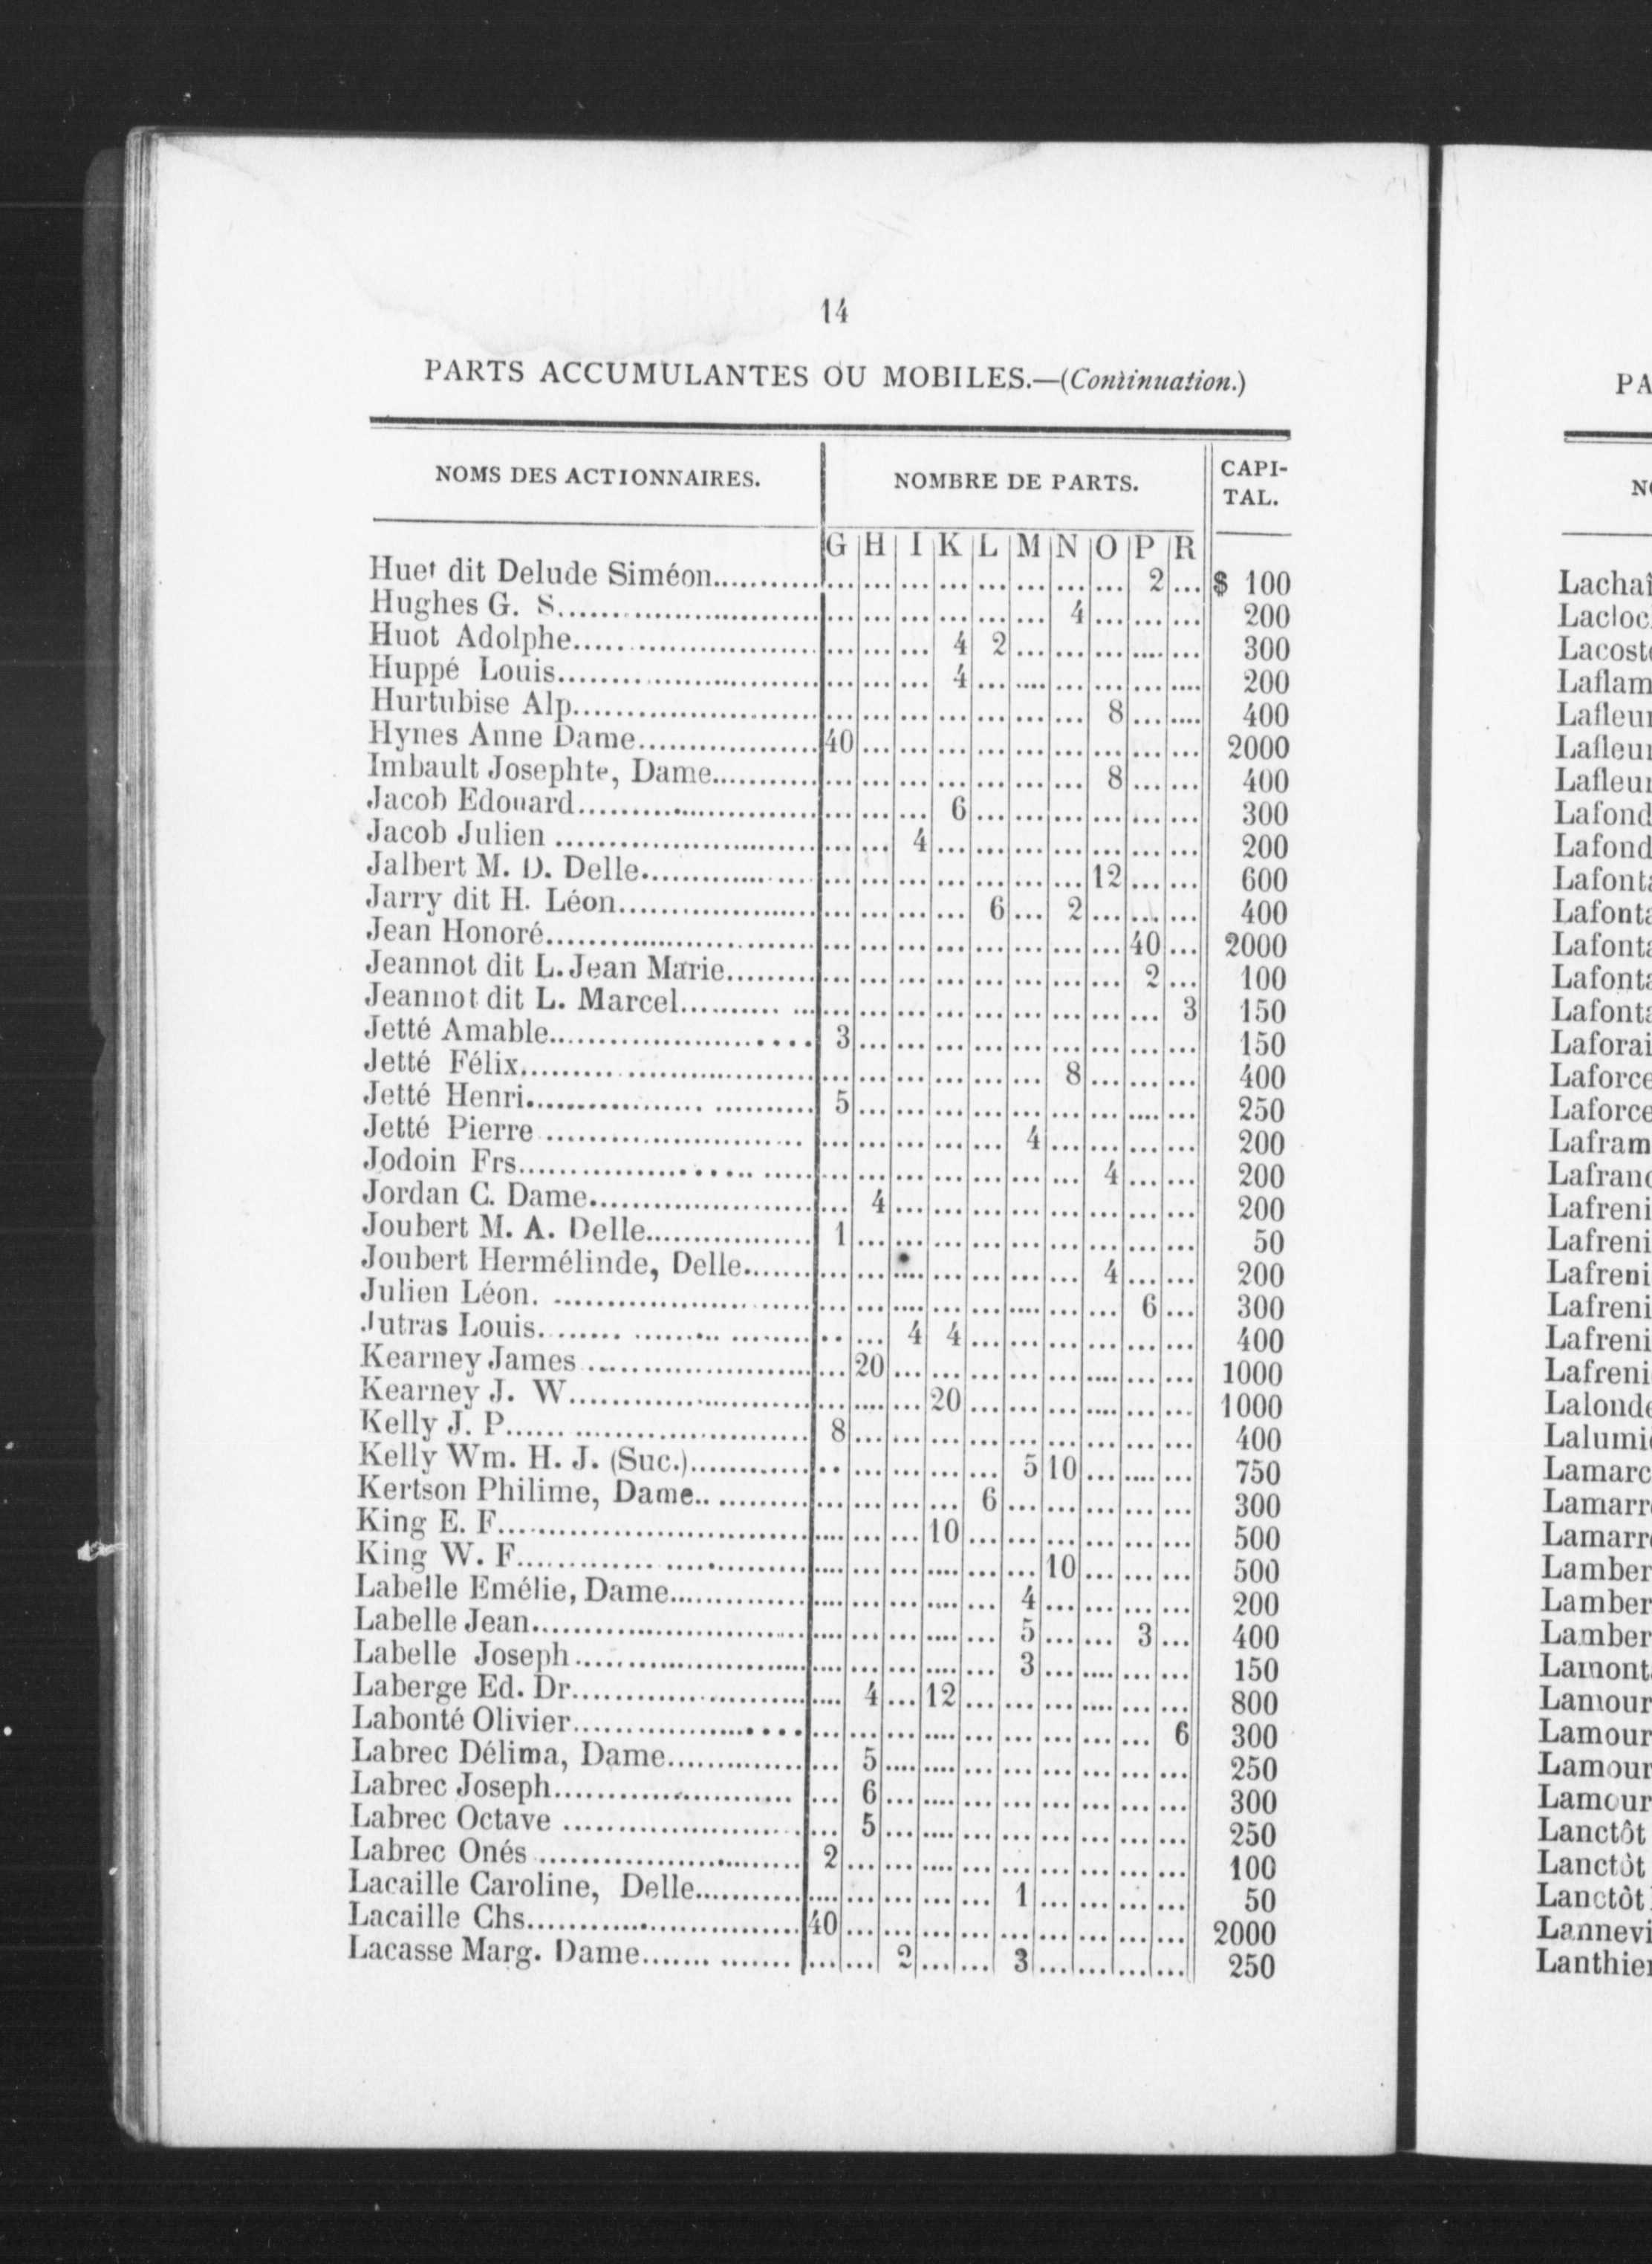 14
PARTS ACCUMULANTES OU MOBILES.—(Continuation.)
NOMS DES ACTIONNAIRES. NOMBRE DE PARTS. CAPI-
TAL.
G H I K L M N O P R
Huet dit Delude Siméon........... ... ... ... ... ... ... ... ... 2 ... $ 100
Hughes G. S........... ... ... ... ... ... ... 4 ... ... ... 200
Huot Adolphe........... ... ... ... 4 2 ... ... ... ... ... 300
Huppé Louis........... ... ... ... 4 ... ... ... ... ... ... 200
Hurtubise Alp........... ... ... ... ... ... ... ... 8 ... ... 400
Hynes Anne Dame........... 40 ... ... ... ... ... ... ... ... ... 2000
Imbault Josephte, Dame........... ... ... ... ... ... ... ... 8 ... ... 400
Jacob Edouard........... ... ... ... 6 ... ... ... ... ... ... 300
Jacob Julien ........... ... ... 4 ... ... ... ... ... ... ... 200
Jalbert M. D. Delle........... ... ... ... ... ... ... ... 12 ... ... 600
Jarry dit H. Léon........... ... ... ... ... 6 ... 2 ... ... ... 400
Jean Honoré........... ... ... ... ... ... ... ... ... 40 ... 2000
Jeannot dit L. Jean Marie........... ... ... ... ... ... ... ... ... 2 ... 100
Jeannot dit L. Marcel........... ... ... ... ... ... ... ... ... ... 3 150
Jetté Amable........... 3 ... ... ... ... ... ... ... ... ... 150
Jetté Félix........... ... ... ... ... ... ... 8 ... ... ... 400
Jetté Henri........... 5 ... ... ... ... ... ... ... ... ... 250
Jetté Pierre ........... ... ... ... ... ... 4 ... ... ... ... 200
Jodoin Frs........... ... ... ... ... ... ... ... 4 ... ... 200
Jordan C. Dame........... ... 4 ... ... ... ... ... ... ... ... 200
Joubert M. A. Delle........... 1 ... ... ... ... ... ... ... ... ... 50
Joubert Hermélinde, Delle........... ... ... ... ... ... ... ... 4 ... ... 200
Julien Léon. ........... ... ... ... ... ... ... ... ... 6 ... 300
Jutras Louis........... ... ... 4 4 ... ... ... ... ... ... 400
Kearney James ........... ... 20 ... ... ... ... ... ... ... ... 1000
Kearney J. W........... ... ... ... 20 ... ... ... ... ... ... 1000
Kelly J. P........... 8 ... ... ... ... ... ... ... ... ... 400
Kelly Wm. H. J. (Suc.)........... ... ... ... ... ... 5 10 ... ... ... 750
Kertson Philime, Dame........... ... ... ... ... 6 ... ... ... ... ... 300
King E. F........... ... ... ... 10 ... ... ... ... ... ... 500
King W. F........... ... ... ... ... ... ... 10 ... ... ... 500
Labelle Emélie, Dame........... ... ... ... ... ... 4 ... ... ... ... 200
Labelle Jean........... ... ... ... ... ... 5 ... ... 3 ... 400
Labelle Joseph........... ... ... ... ... ... 3 ... ... ... ... 150
Laberge Ed. Dr........... ... 4 ... 12 ... ... ... ... ... ... 800
Labonté Olivier........... ... ... ... ... ... ... ... ... ... 6 300
Labrec Délima, Dame........... ... 5 ... ... ... ... ... ... ... ... 250
Labrec Joseph........... ... 6 ... ... ... ... ... ... ... ... 300
Labrec Octave ........... ... 5 ... ... ... ... ... ... ... ... 250
Labrec Onés ........... 2 ... ... ... ... ... ... ... ... ... 100
Lacaille Caroline, Delle........... ... ... ... ... ... 1 ... ... ... ... 50
Lacaille Chs........... 40 ... ... ... ... ... ... ... ... ... 2000
Lacasse Marg. Dame........... ... ... 2 ... ... 3 ... ... ... ... 250
PA
Lachaî
Lacloc
Lacoste
Laflam
Lafleur
Lafleur
Lafleur
Lafond
Lafond
Lafonta
Lafonta
Lafonta
Lafonta
Lafonta
Laforai
Laforce
Laforce
Lafram
Lafranc
Lafreni
Lafreni
Lafreni
Lafreni
Lafreni
Lafreni
Lalonde
Lalumi
Lamarc
Lamarr
Lamarr
Lamber
Lamber
Lamber
Lamont
Lamour
Lamour
Lamour
Lamour
Lanctôt
Lanctôt
Lanctôt
Lannevi
Lanthier